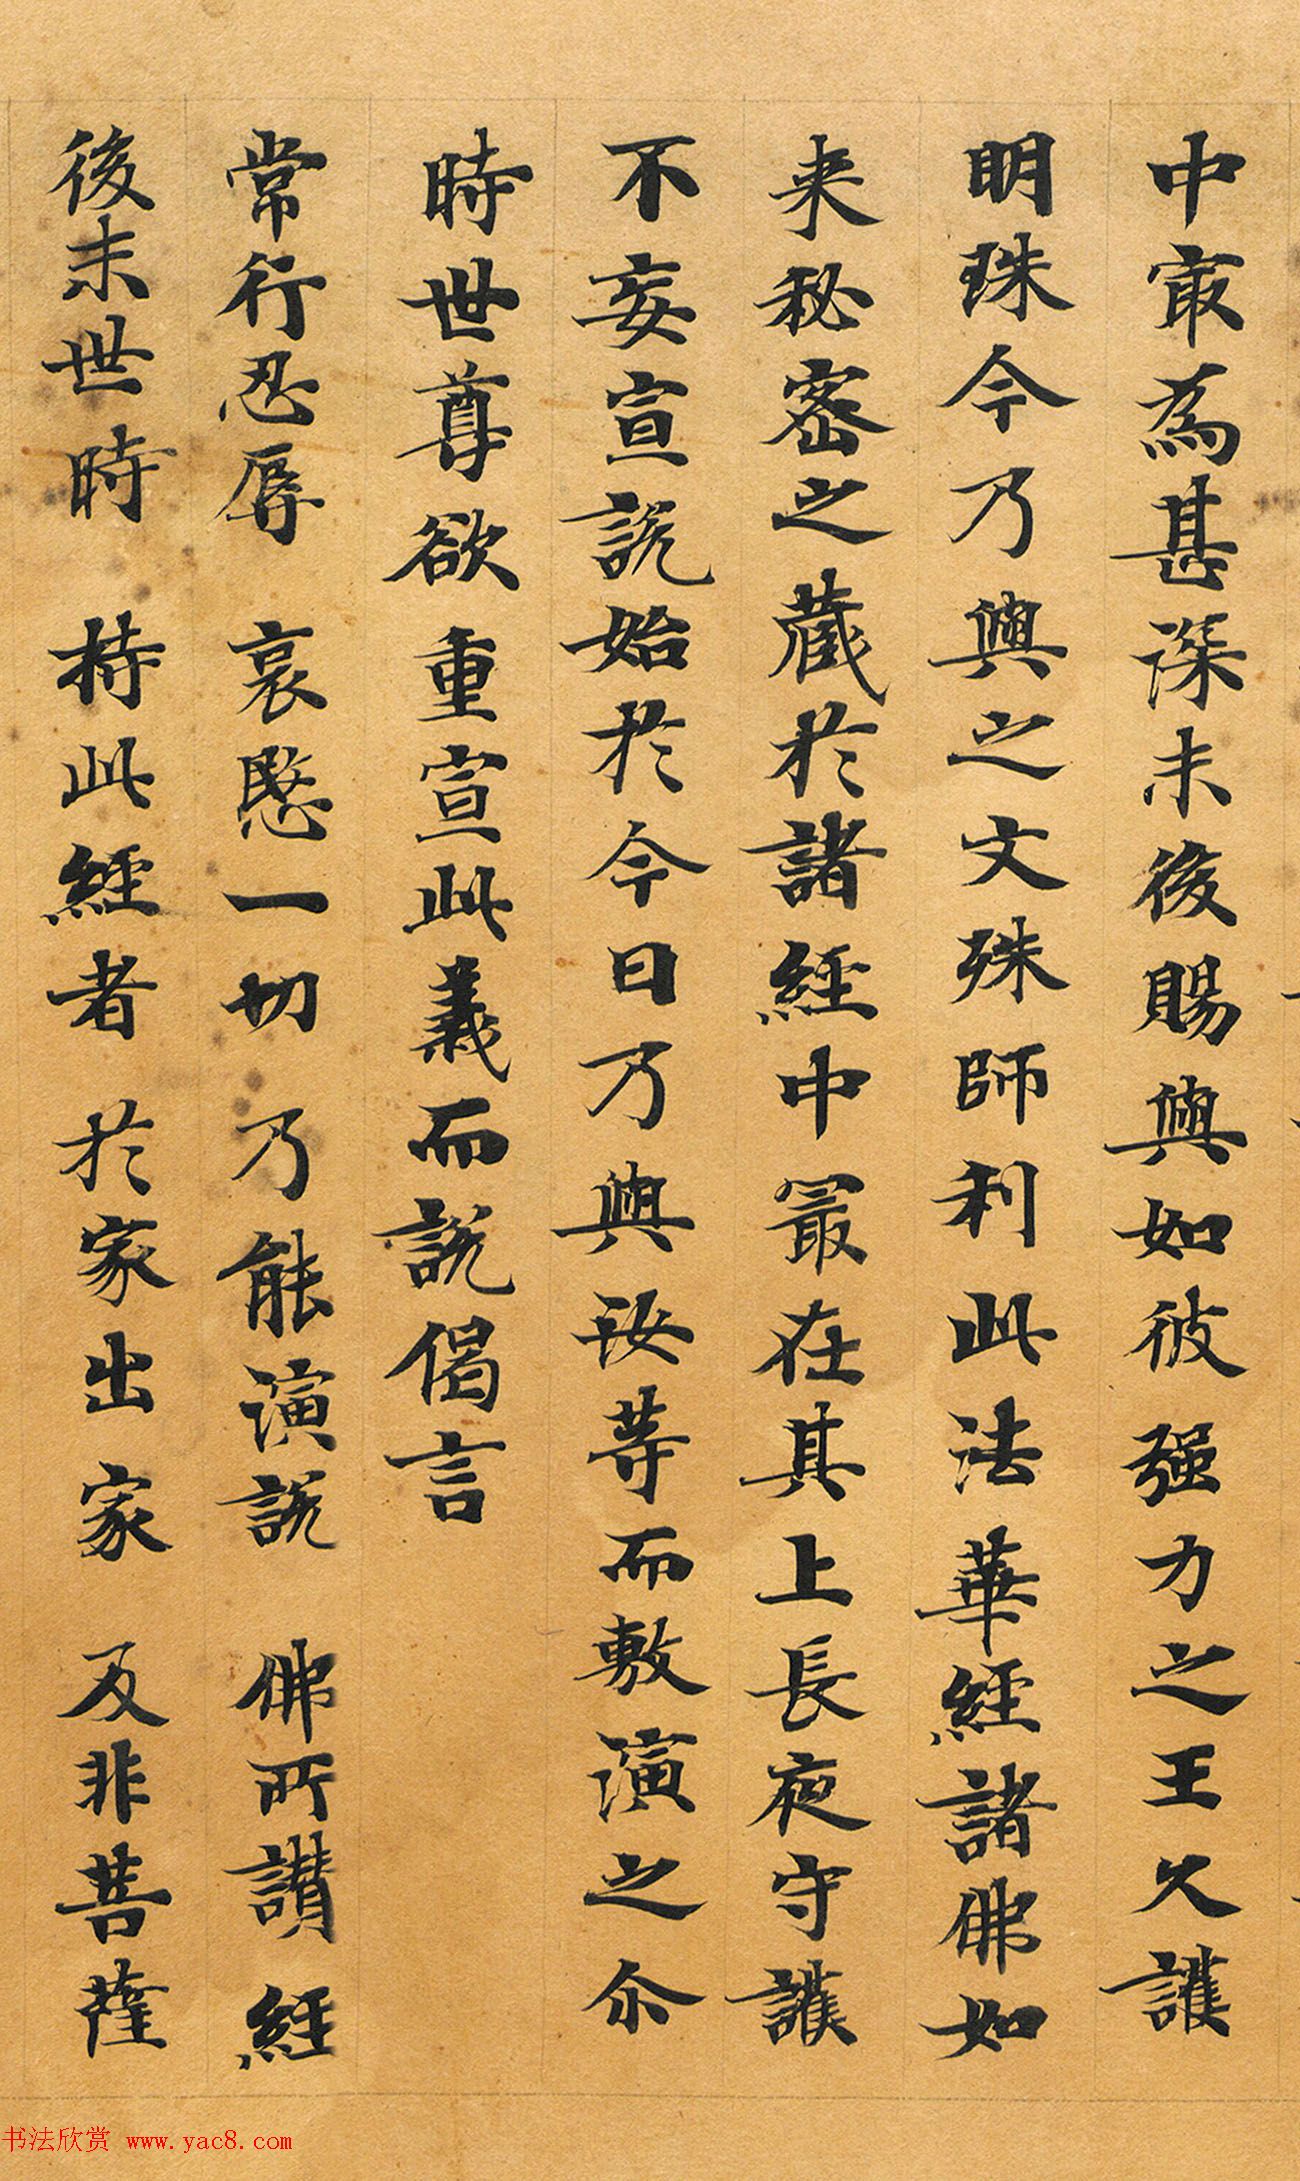 中冣為甚深末後賜與如彼强力之王久護
明珠今乃與之文殊師利此法華經諸佛如
来秘密之藏於諸經中冣在其上長夜守護
不妄宣説始於今日乃與汝等而敷演之尒
時世尊欲重宣此義而説偈言
常行忍辱 哀愍一切 乃能演説 佛所讃經
後末世時 持此經者 於家出家 及非菩薩
书法欣赏 www.yac8.com